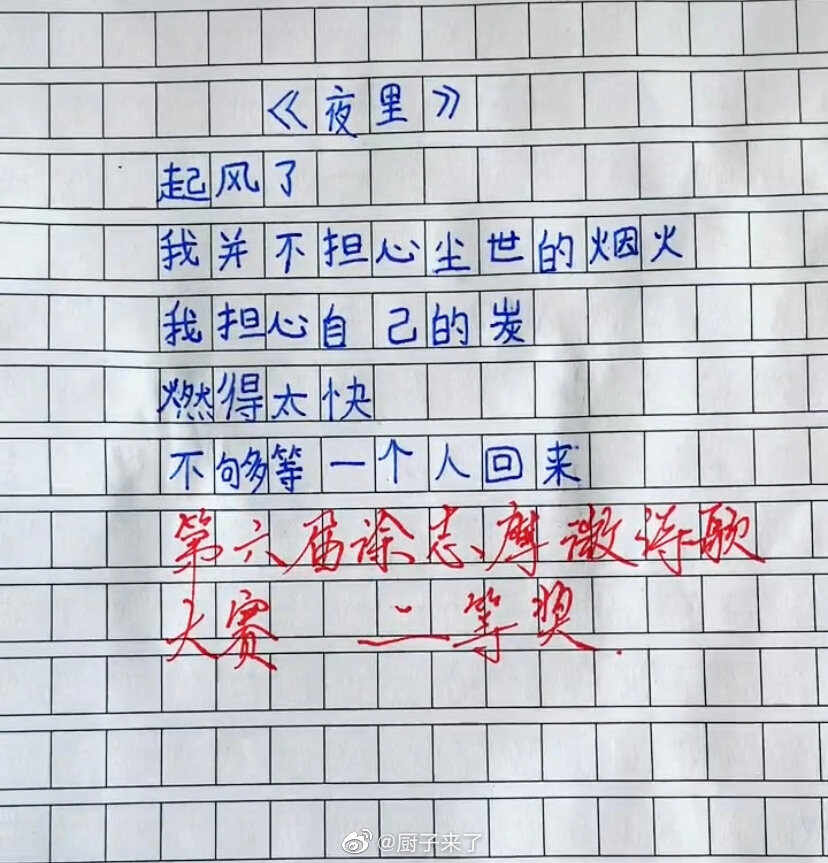 《夜里》
起风了
我并不担心尘世的烟火
我担心自己的炭
燃得太快
不够等一个人回来
第六届徐志摩微诗歌
大赛 二等奖.
@厨子来了